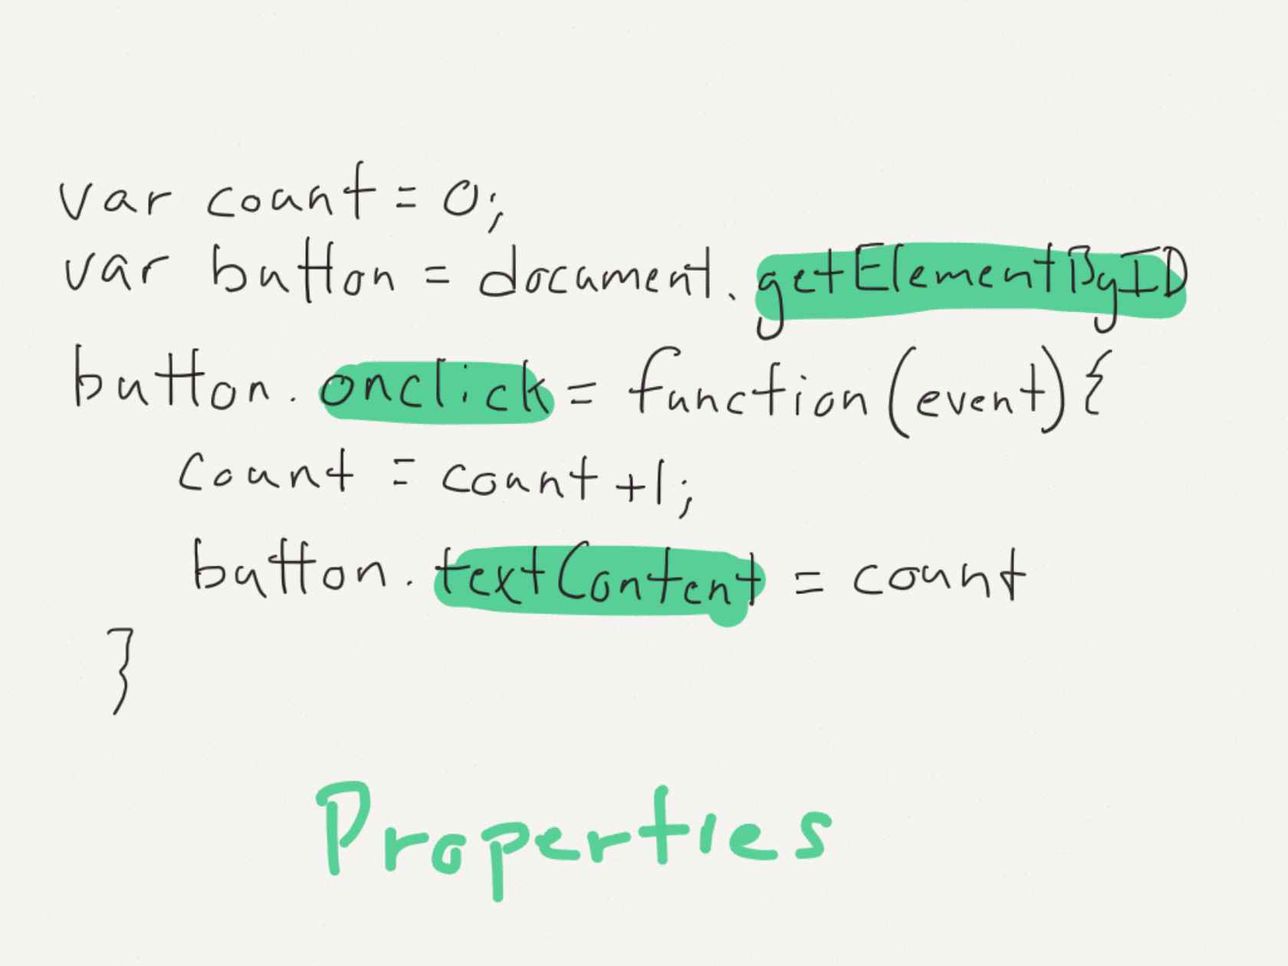 var count = 0;
var button = document.getElementByID
button.onclick = function(event){
count = count +1;
button.textContent = count
}
Properties